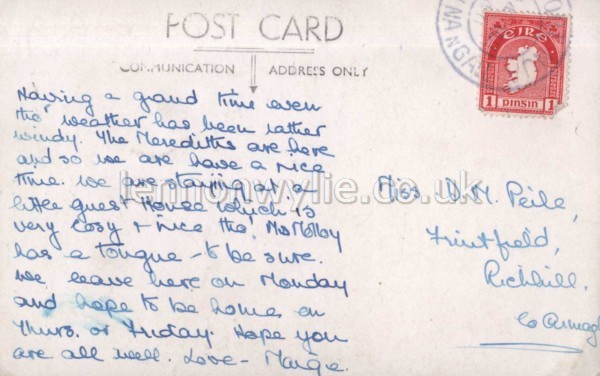 POST CARD
COMMUNICATION ADDRESS ONLY
Having a grand time even
tho' weather has been rather
windy. The Merediths are here
and so we are have a nice
time. We are staying at a
little guest House which is
very cosy + nice tho' Ms Molloy
has a tongue - to be sure.
We leave here on Monday
and hope to be home on
Thurs. or Friday. Hope you
are all well. Love - Margie.
ÉIRE
1 PINSIN 1
Miss D. M. Peile,
Fruitfield,
Richhill.
Co Armagh
lennonwylie.co.uk